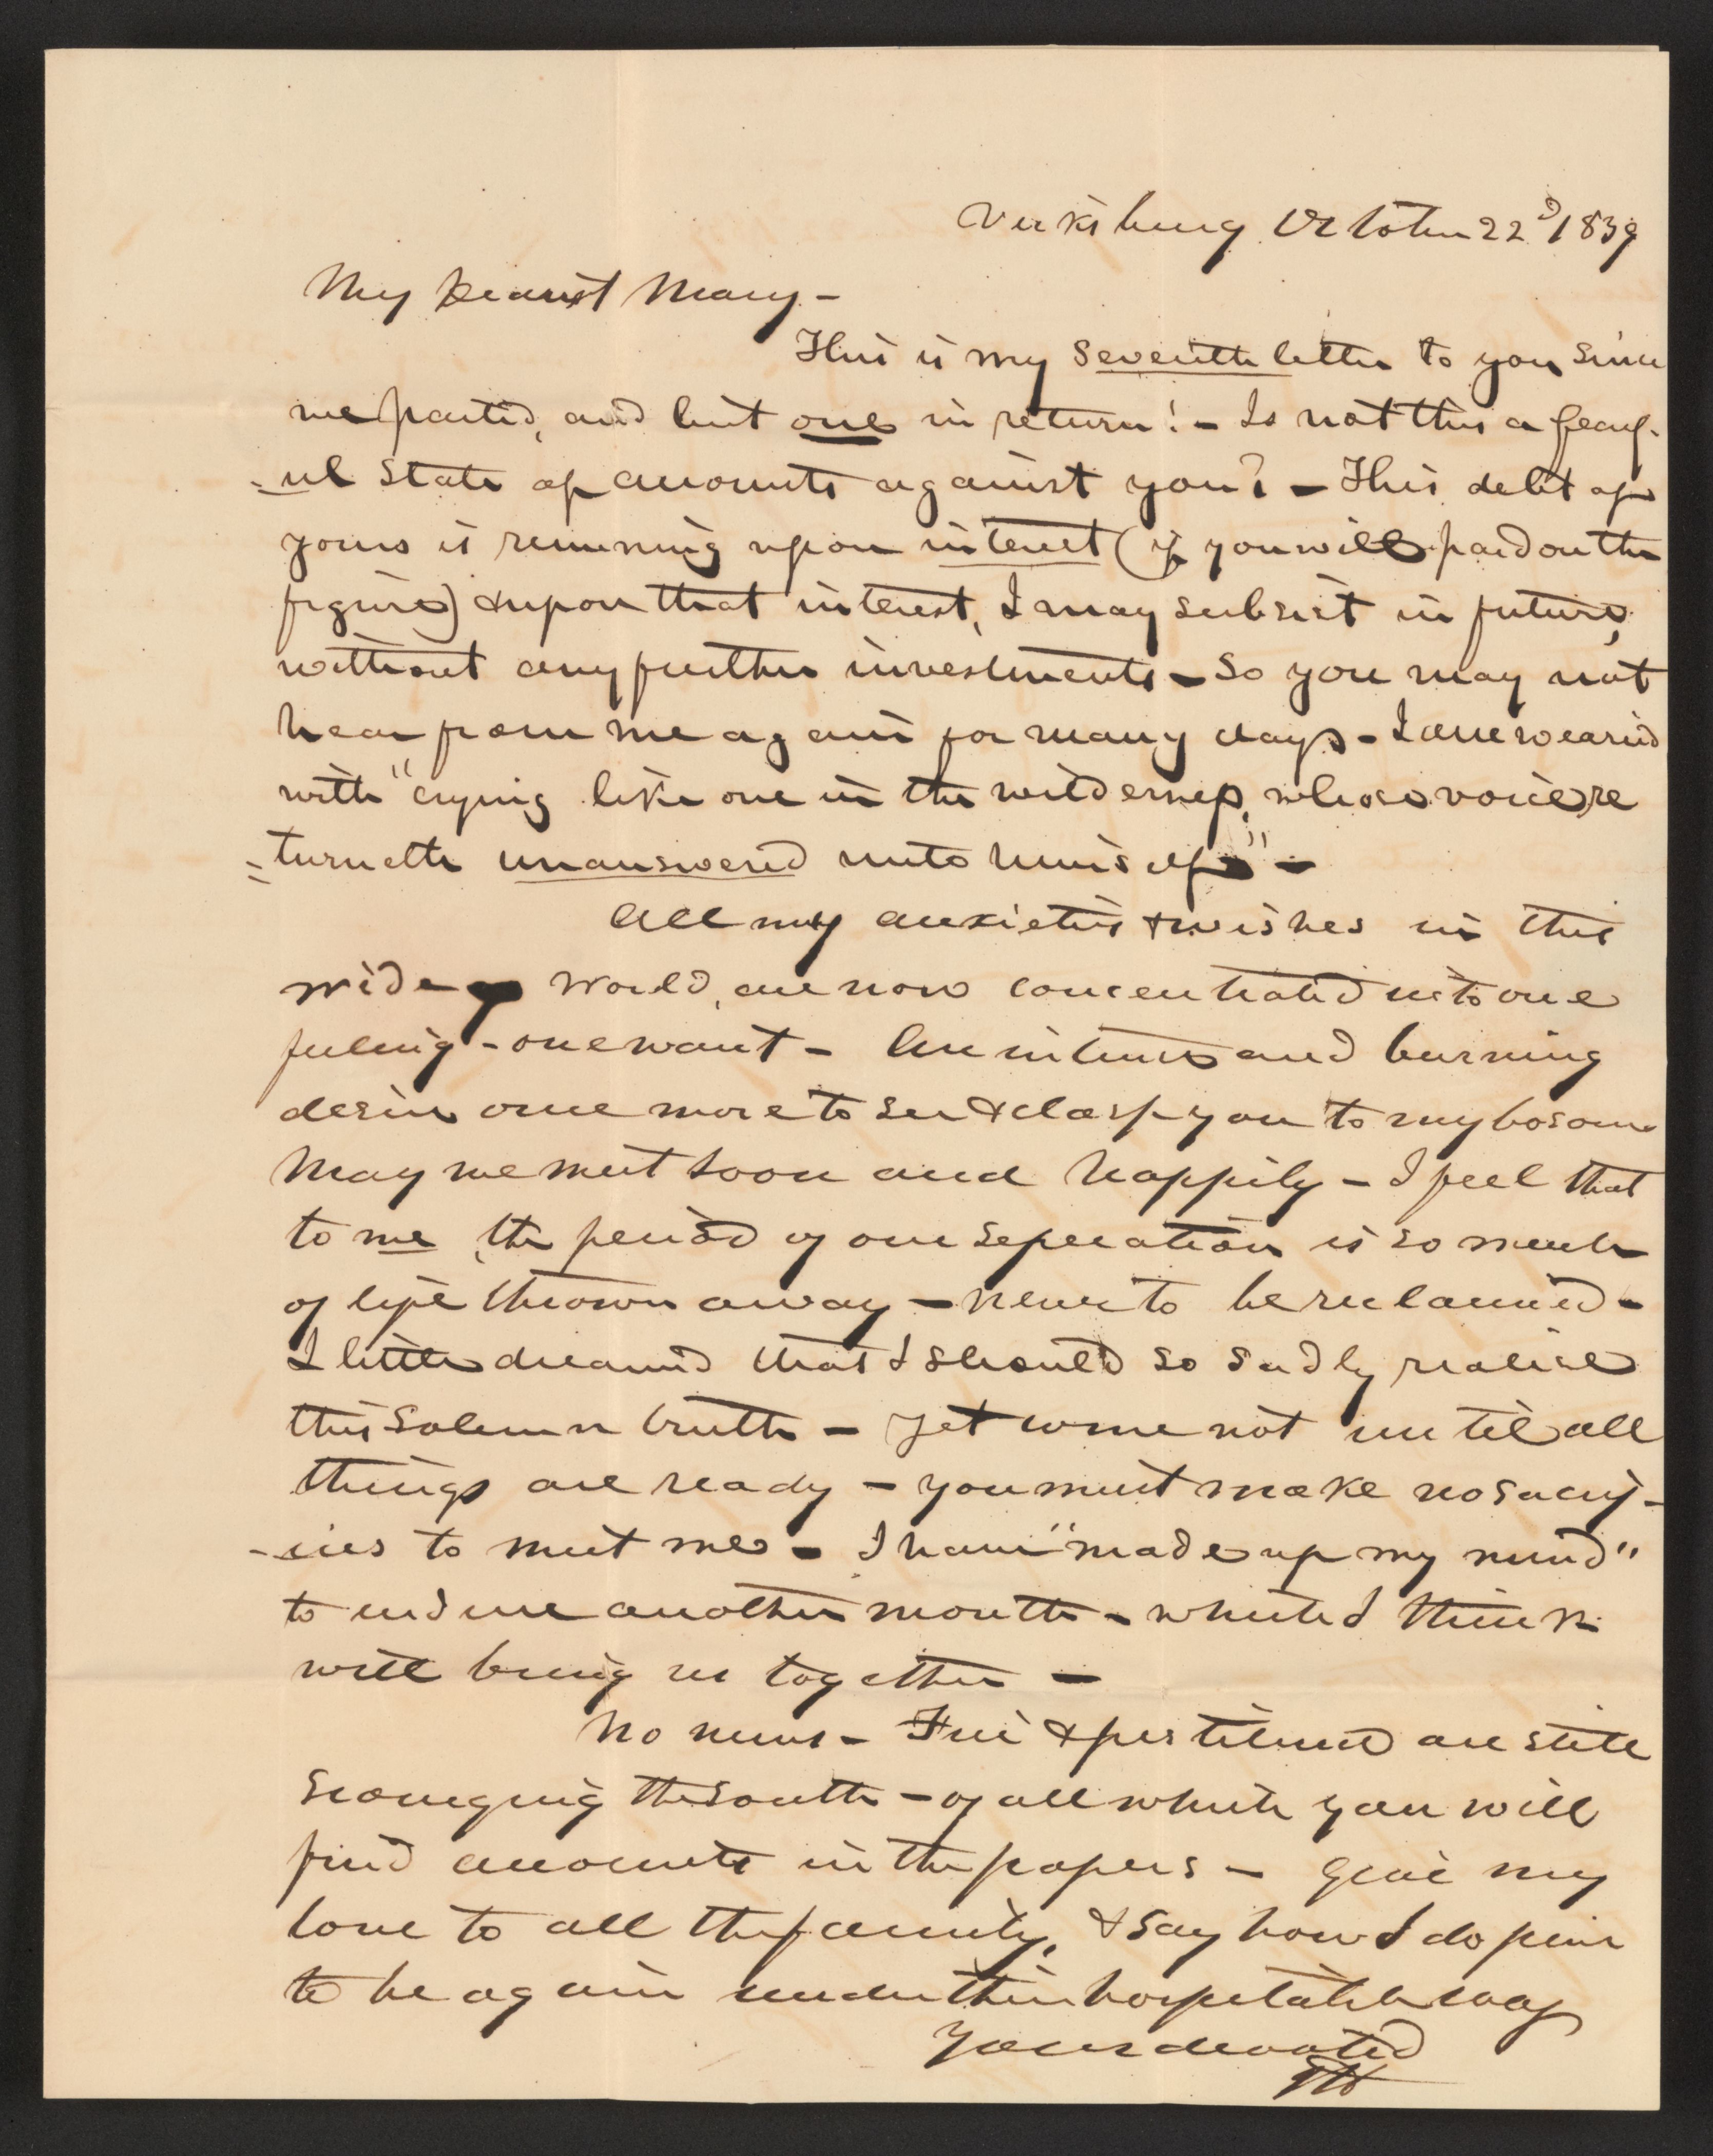 Vicksburg October 22d 1839
My Dearest Mary -
This is my seventh letter to you since
we parted, and but one in return! - Is not this a fearf-
-ul state of accounts against you? - This debt of
yours is running upon interest (if you will pardon the
figure) & upon that interest, I may subsist in future,
without any further investments - So you may not
hear from me again for many days - I am wearied
with "crying like one in the wilderness, whose voice re
=turneth unanswered unto himself" -
All my anxieties & wishes in this
wide world, are now concentrated into one
feeling - one want - An intense and burning
desire once more to see & clasp you to my bosom
May we meet soon and happily - I feel that
to me, the period of our seperation is so much
of life thrown away - never to be reclaimed -
I little dreamed that I should so sadly realise
this solemn truth - Yet come not until all
things are ready - you must make no sacrif-
-ices to meet me - I have "made up my mind"
to endure another month - which I think
will bring us together -
No news - Fire & pestilence are still
scourging the South - of all which you will
find accounts in the papers - Give my
love to all the family, & say how I do pine
to be again under their hospitable roof
Yours devoted